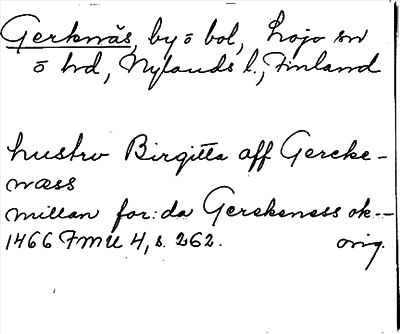 Gerknäs, by o bol, Lojo sn
o hd, Nylands l., Finland
hustro Birgitta aff Gercke-
næss
millan for:da Gerckeness ok --
1466 FMU 4, s. 262. orig.